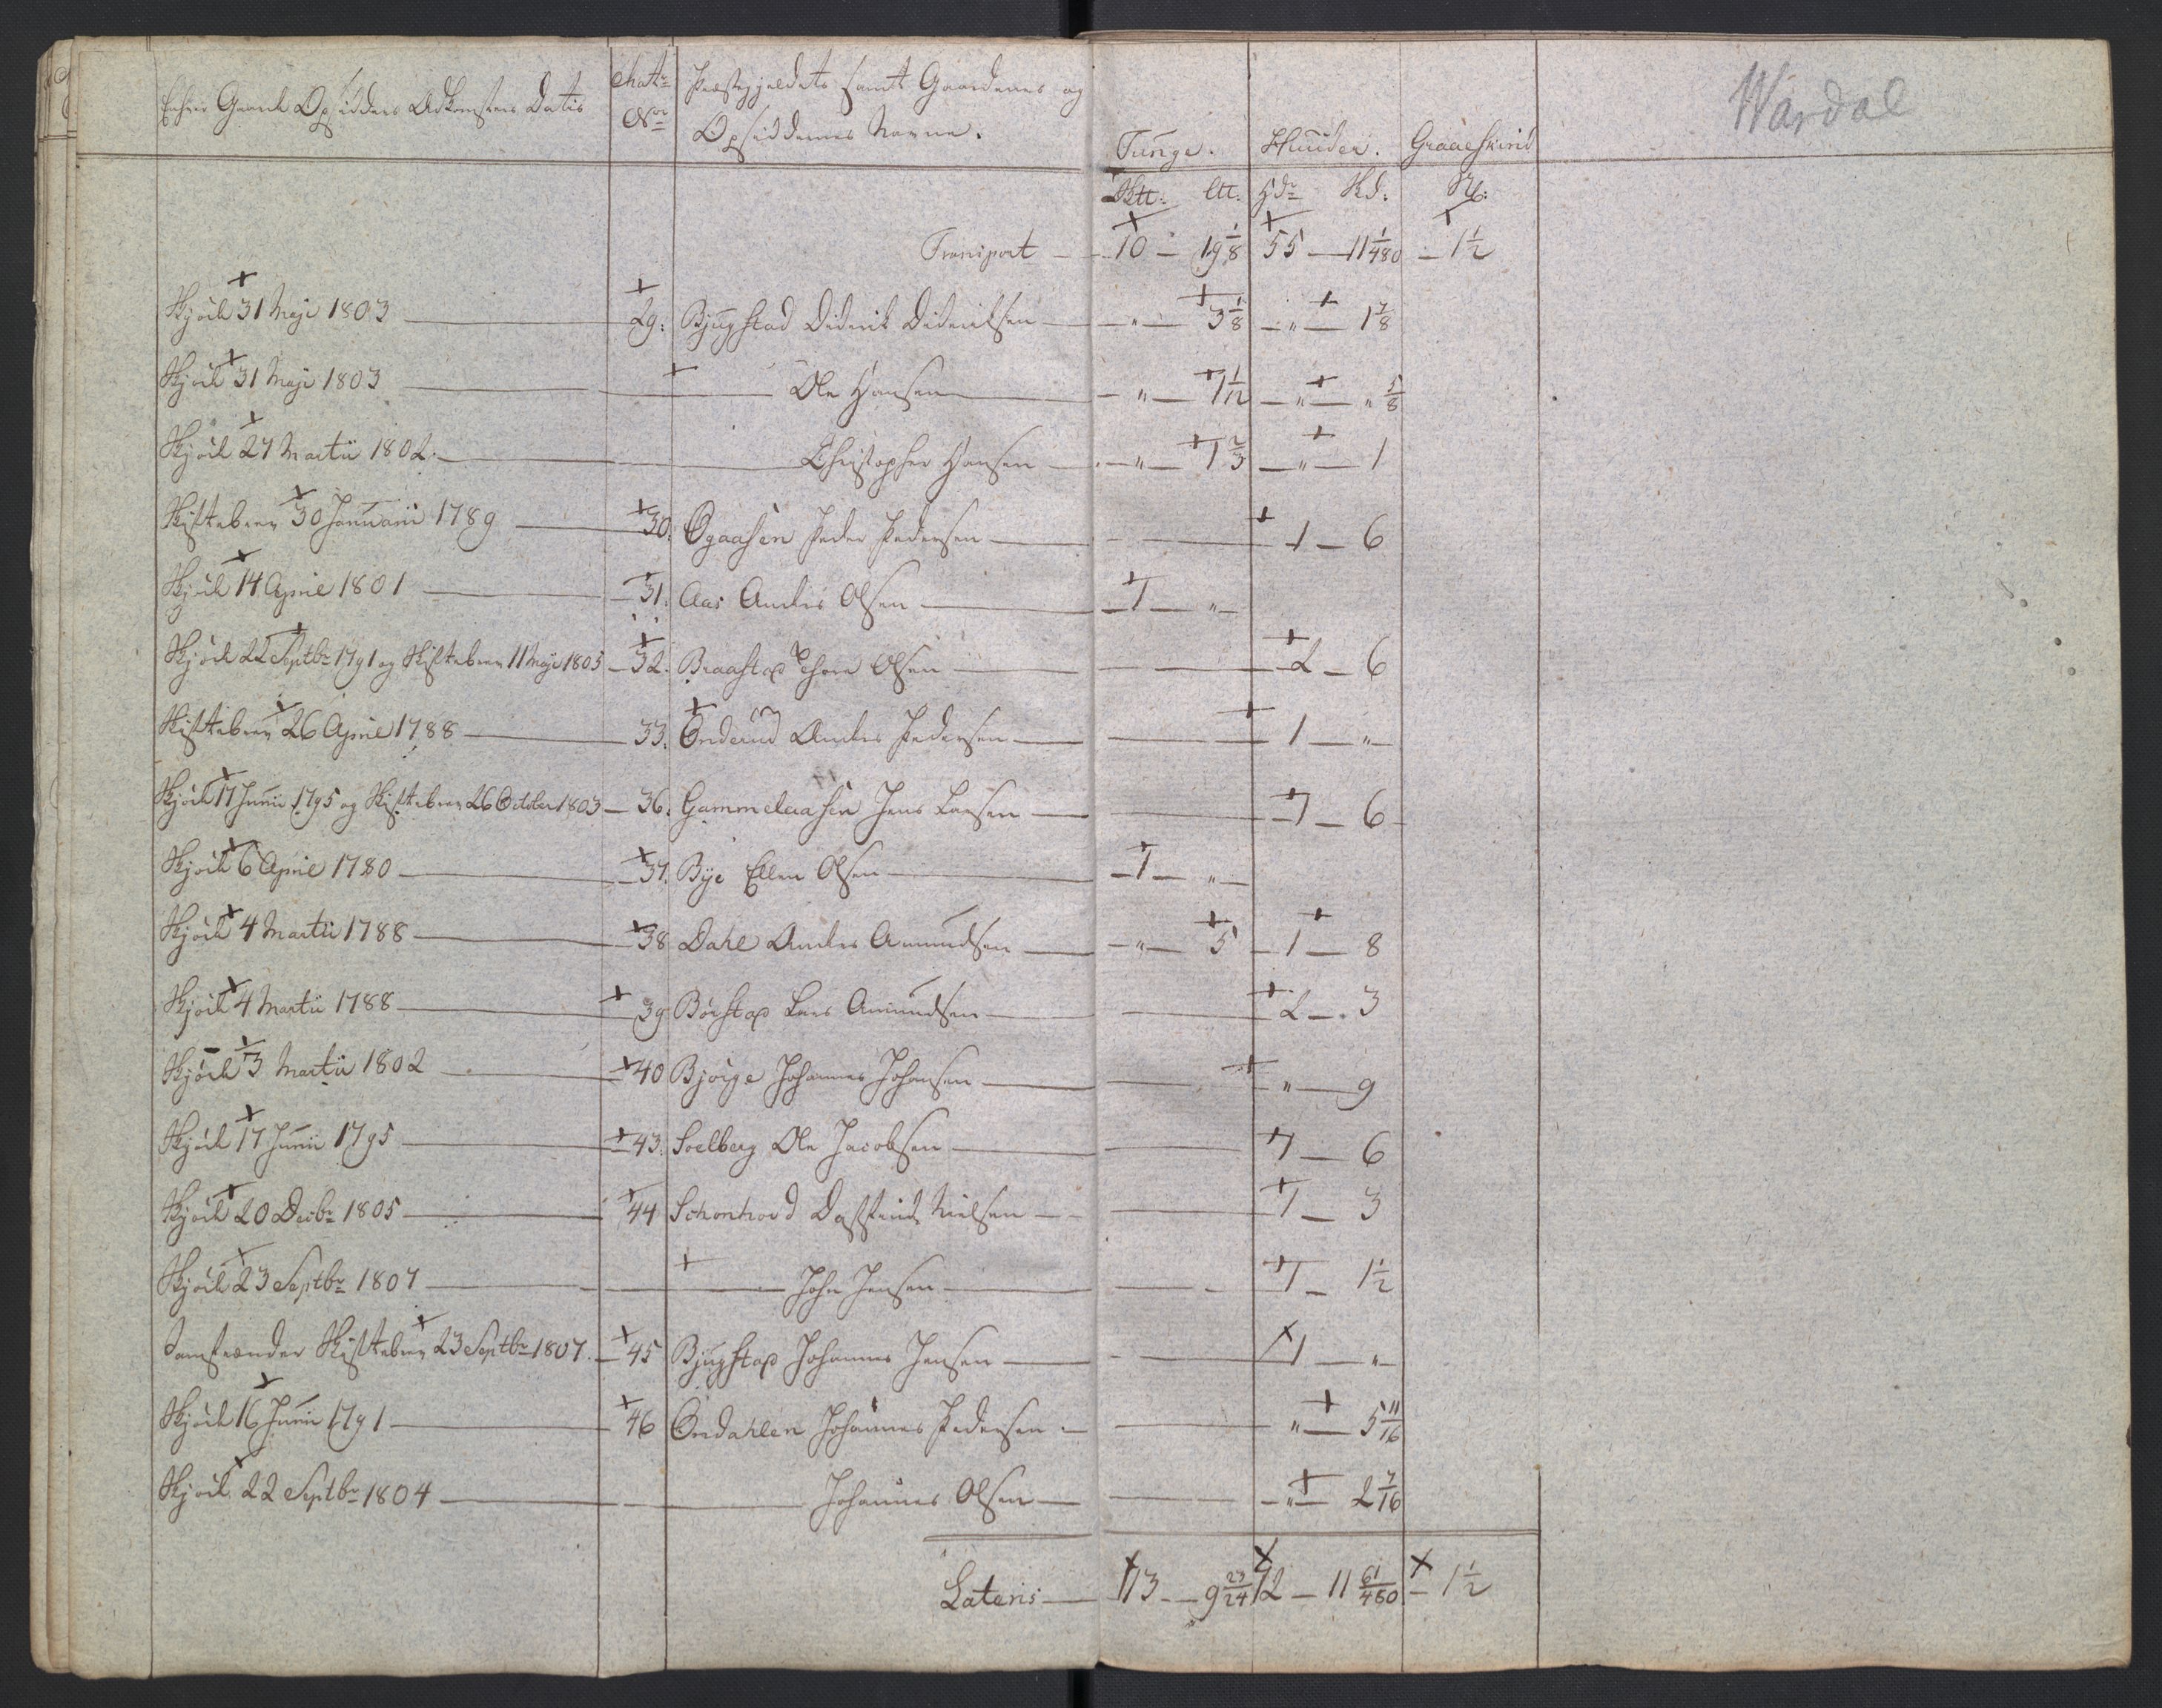 Enhver Gaards Opsidders Adkomsters Datis
Matr: No:
Præstegjeldets samt Gaardenes og
Opsiddernes Navne.
Tunge. Huuder. Graaeskind
Wardal
Sktt: Ltt: Hdr Skd: St:
Transport — 10 — 19 1/8 55 — 11 1/480 — 1 1/2
Skjøde 31 Maji 1803 — 29: Bjugstad Diderik Dideriksen — " — 3 1/8 — " — 1 7/8
Skjøde 31 Maji 1803 — Ole Hansen — " — 7 1/12 — " — " 5/8
Skjøde 27 Martii 1802. — Christopher Hansen — " — 1 2/3 — " — 1
Skiftebrev 30 Januarii 1789 — 30: Øgaasen Peder Pedersen — 1 — 6
Skjøde 14 April 1801 — 31: Aas Anders Olsen — 1 — "
Skjøde 22 Septbr 1791 og Skiftebrev 11 Maji 1805 — 32. Braastad Thore Olsen — 2 — 6
Skiftebrev 26 April 1788 — 33. Onderud Anders Pedersen — 1 — "
Skjøde 17 Junii 1795 og Skiftebrev 26 October 1803 — 36. Gammelaasen Jens Larsen — 1 — 6
Skjøde 6 April 1780 — 37. Bye Ellen Olsen — 1 — "
Skjøde 4 Martii 1788 — 38 Dahl Anders Amundsen — " — 5 — 1 — 8
Skjøde 4 Martii 1788 — 39 Børstad Lars Amundsen — 2 — 3
Skjøde 3 Martii 1802 — 40 Bjørge Johannes Johansen — " — 9
Skjøde 17 Junii 1795 — 43. Soelberg Ole Jacobsen — 1 — 6
Skjøde 20 Decbr 1805 — 44 Schonhovd Nielsen — 1 — 3
Skjøde 23 Septbr 1807 — John Jensen — 1 — 1 1/2
Skiftebrev 23 Septbr 1807. — 45 Bjugstad Johannes Jensen — 1 — "
Skjøde 16 Junii 1791 — 46 Ondahlen Johannes Pedersen — " — 5 11/16
Skjøde 22 Septbr 1804 — Johannes Olsen — " — 2 7/16
Lateris — 13 — 9 23/24 72 — 11 61/480 — 1 1/2